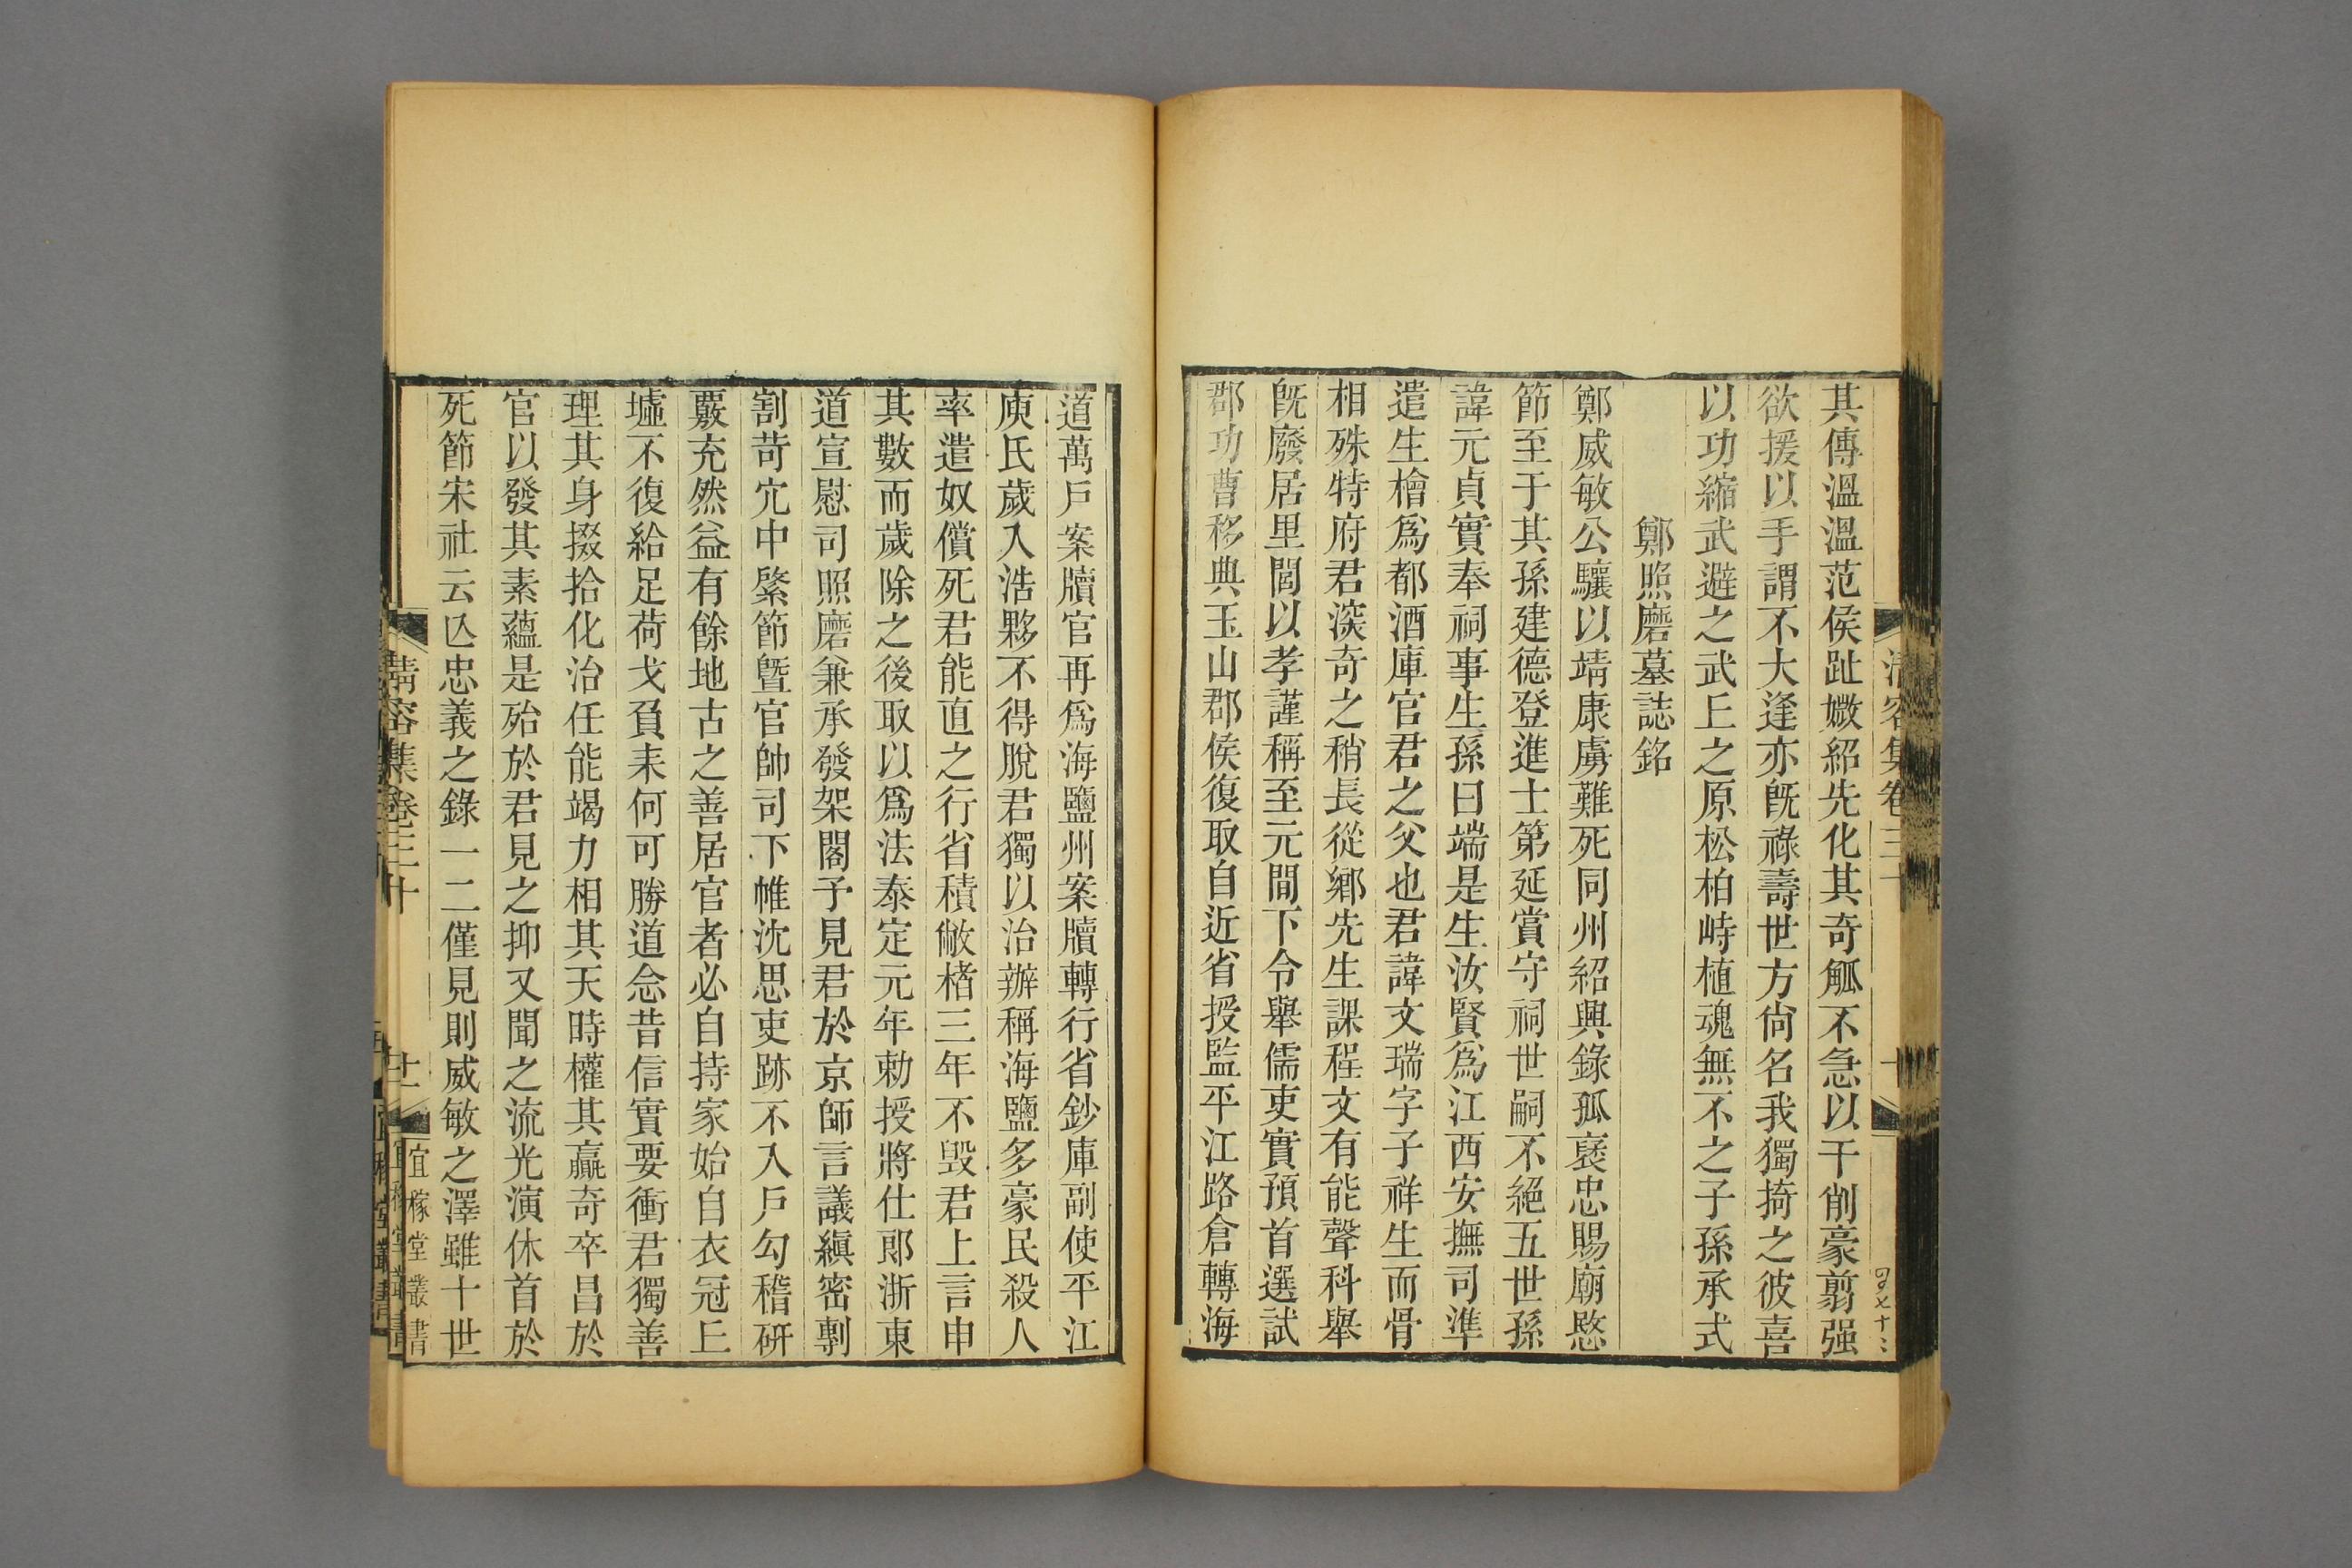 其傳溫溫范侯趾媺紹先化其奇觚不急以干削豪翦强
欲援以手謂不大逢亦旣祿壽世方尙名我獨掎之彼喜
以功縮武避之武上之原松柏峙植魂無不之子孫承式
鄭照磨墓誌銘
鄭威敏公驤以靖康虜難死同州紹興錄孤襃忠賜廟愍
節至于其孫建德登進士第延賞守祠世嗣不絕五世孫
諱元貞實奉祠事生孫曰端是生汝賢爲江西安撫司準
遣生檜爲都酒庫官君之父也君諱文瑞字子祥生而骨
相殊特府君深奇之稍長從鄉先生課程文有能聲科舉
旣廢居里閭以孝謹稱至元間下令舉儒吏實預首選試
郡功曹移典玉山郡侯復取自近省授監平江路倉轉海
道萬戶案牘官再爲海鹽州案牘轉行省鈔庫副使平江
庾氏歲入浩夥不得脫君獨以治辦稱海鹽多豪民殺人
率遣奴償死君能直之行省積敝楮三年不毁君上言申
其數而歲除之後取以爲法泰定元年勅授將仕郎浙東
道宣慰司照磨兼承發架閣予見君於京師言議縝密剸
割苛宂中綮節曁官帥司下帷沈思吏跡不入戶勾稽硏
覈充然益有餘地古之善居官者必自持家始自衣冠上
墟不復給足荷戈負耒何可勝道念昔信實要衝君獨善
理其身掇拾化治任能竭力相其天時權其贏奇卒昌於
官以發其素蘊是殆於君見之抑又聞之流光演休首於
死節宋社云亾忠義之錄一二僅見則威敏之澤雖十世
淸容集卷三十
十一
宜稼堂叢書